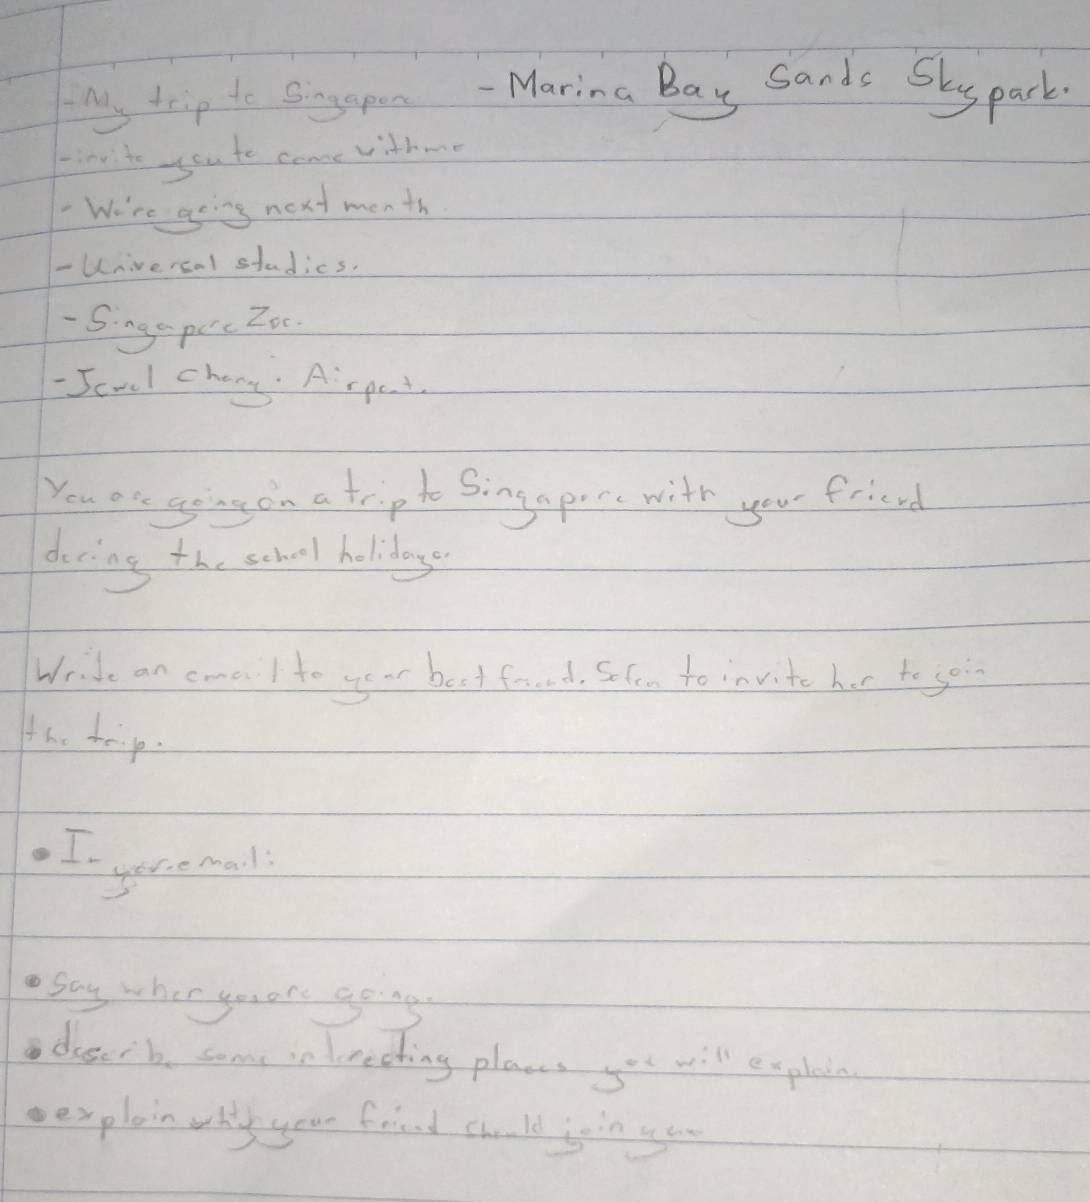 - My trip to Singapore - Marina Bay Sands Sky park.
- invite you to come with me
- We're going next month.
- Universal studios.
- Singapore Zoo.
- Jewel Changi Airport.
You are going on a trip to Singapore with your friend
during the school holidays.
Write an email to your best friend. Sofea to invite her to join
the trip.
• In your email:
• Say when you are going.
• describe some interesting places you will explain.
• explain why your friend should join you